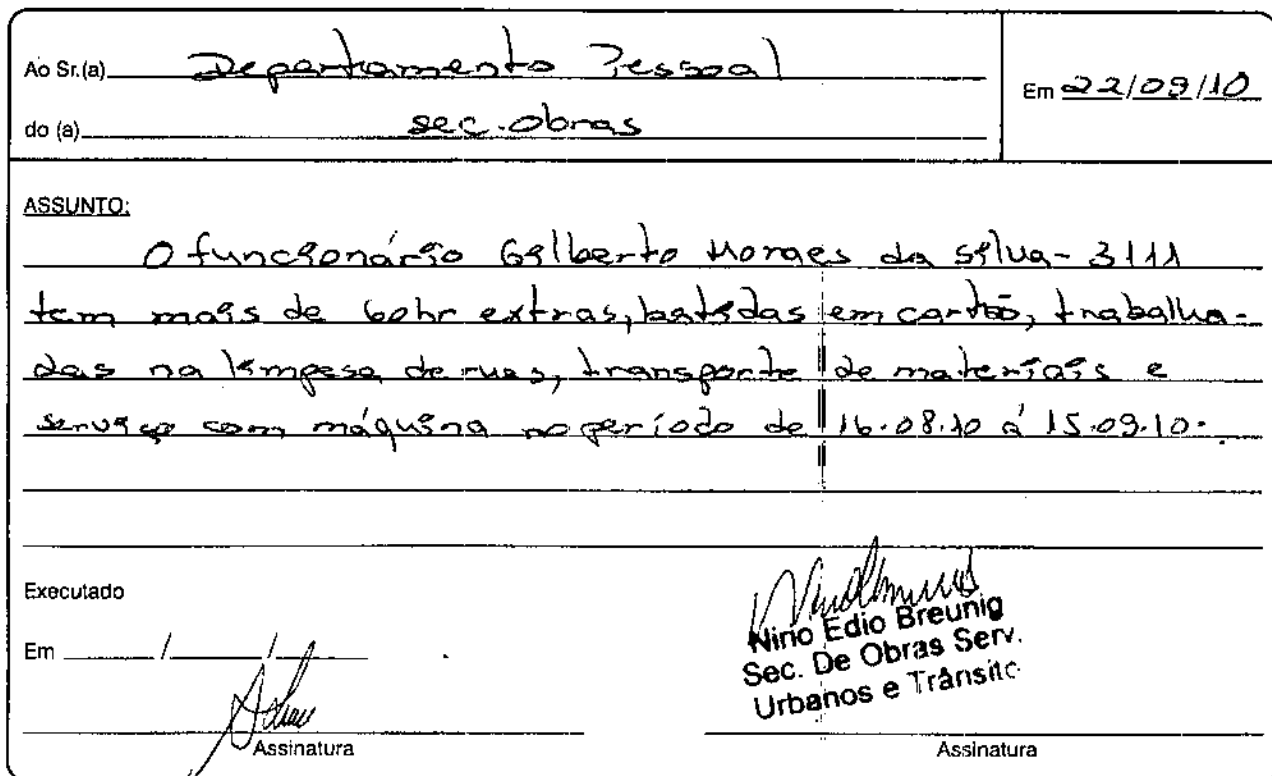 Ao Sr.(a) Departamento Pessoal
Em 22/09/10
do (a) sec. obras
ASSUNTO:
O funcionário Gilberto Moraes da Silva - 3111
tem mais de 60hr extras, batidas em cartão, trabalha-
das na limpesa de ruas, transporte de materiais e
serviço com máquina no período de 16.08.10 á 15.09.10.
Executado
Em / /
Nirio Edio Breunig
Sec. De Obras Serv.
Urbanos e Trânsito
Assinatura
Assinatura